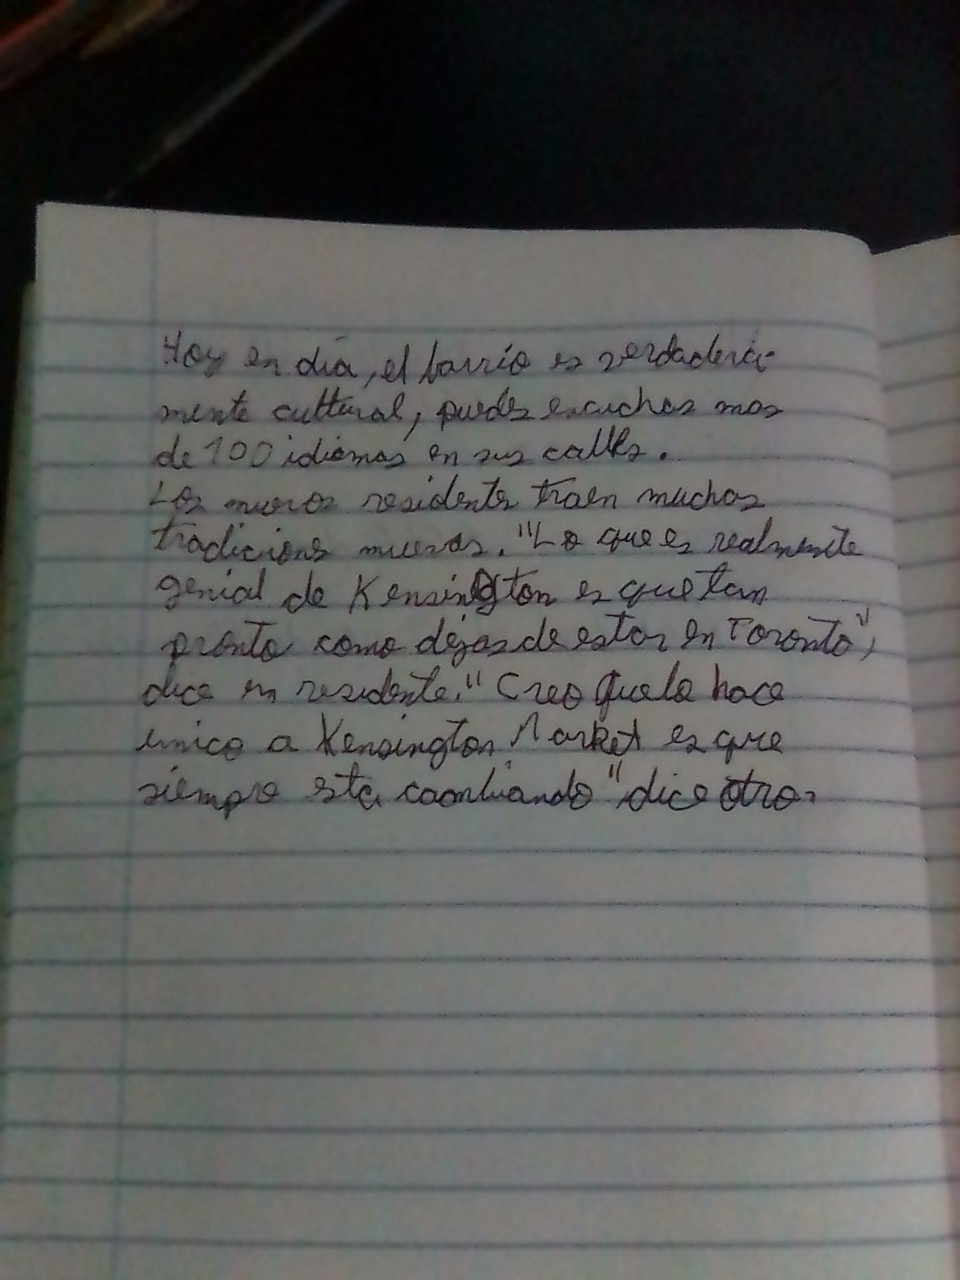 Hoy en día, el barrio es verdadera-
mente cultural, puedes escuchar mas
de 100 idiomas en sus calles.
Los nuevos residentes traen muchas
tradiciones nuevas. "Lo que es realmente
genial de Kensington es que tan
pronto como dejas de estar en Toronto",
dice un residente. "Creo que lo hace
unico a Kensington Market es que
siempre esta cambiando" dice otro.